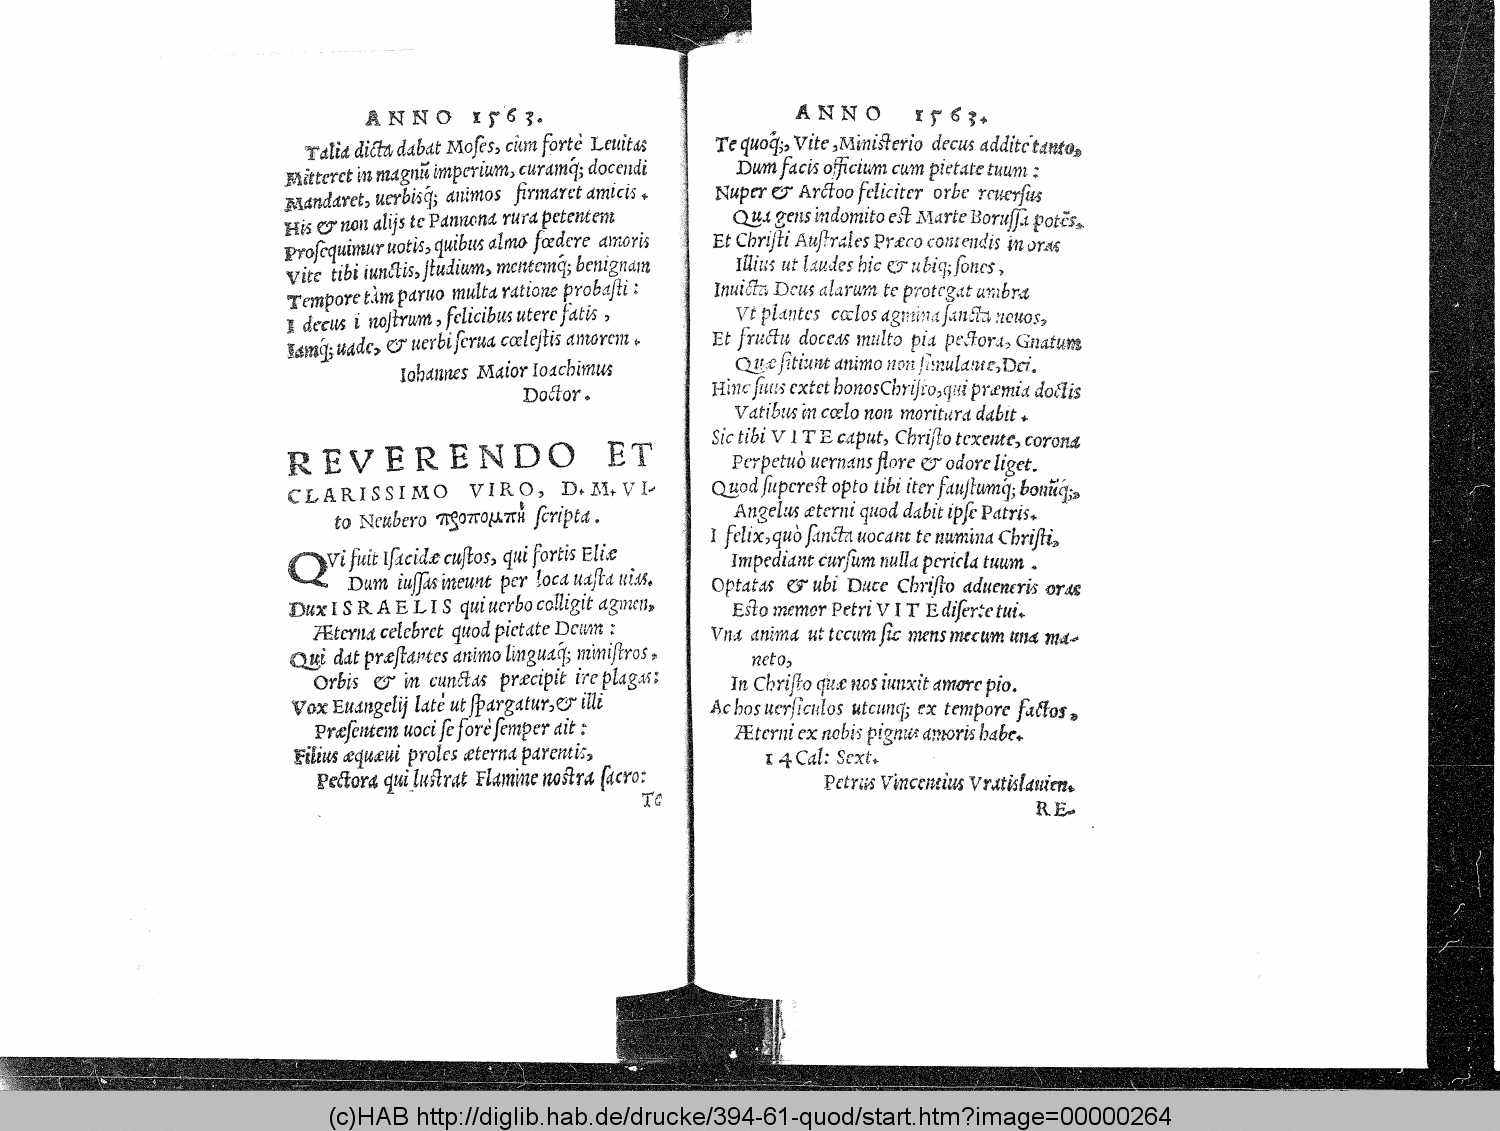 ANNO 1563.
Talia dicta dabat Moſes, cùm fortè Leuitas
Mitteret in magnũ imperium, curamq́; docendi
Mandaret, uerbisq́; animos firmaret amicis.
His & non alijs te Pannona rura petentem
Proſequimur uotis, quibus almo fœdere amoris
Vite tibi iunctis, ſtudium, mentemq́; benignam
Tempore tàm paruo multa ratione probaſti:
I decus i noſtrum, felicibus utere fatis,
Iamq́; uade, & uerbi ſerua cœleſtis amorem.
Iohannes Maior Ioachimus
Doctor.
REVERENDO ET
CLARISSIMO VIRO, D. M. VI-
to Neubero προπομπὴ ſcripta.
QVi fuit Iſacidæ cuſtos, qui fortis Eliæ
Dum iuſſas ineunt per loca uaſta uias.
Dux ISRAELIS qui uerbo colligit agmen,
Æterna celebret quod pietate Deum:
Qui dat præſtantes animo linguaq́; miniſtros,
Orbis & in cunctas præcipit ire plagas:
Vox Euangelij latè ut ſpargatur, & illi
Præſentem uoci ſe forè ſemper ait:
Filius æquæui proles æterna parentis,
Pectora qui luſtrat Flamine noſtra ſacro:
Te
ANNO 1563.
Te quoq́;, Vite, Miniſterio decus addite tanto,
Dum facis officium cum pietate tuum:
Nuper & Arctoo feliciter orbe reuerſus
Qua gens indomito eſt Marte Boruſſa potẽs,
Et Chriſti Auſtrales Præco contendis in oras
Illius ut laudes hic & ubiq; ſones,
Inuicta Deus alarum te protegat umbra
Vt plantes cœlos agmina ſancta nouos,
Et fructu doceas multo pia pectora, Gnatum
Quæ ſitiunt animo non ſimulante, Dei.
Hinc ſuus extet honos Chriſto, qui præmia doctis
Vatibus in cœlo non moritura dabit.
Sic tibi VITE caput, Chriſto texente, corona
Perpetuò uernans flore & odore liget.
Quod ſupereſt opto tibi iter fauſtumq́; bonũq́;,
Angelus æterni quod dabit ipſe Patris.
I felix, quò ſancta uocant te numina Chriſti,
Impediant curſum nulla pericla tuum.
Optatas & ubi Duce Chriſto adueneris oras
Eſto memor Petri VITE diſerte tui.
Vna anima ut tecum ſic mens mecum una ma-
neto,
In Chriſto quæ nos iunxit amore pio.
Ac hos uerſiculos utcunq; ex tempore factos,
Æterni ex nobis pignus amoris habe.
14 Cal: Sext.
Petrus Vincentius Vratislauien.
RE-
(c)HAB http://diglib.hab.de/drucke/394-61-quod/start.htm?image=00000264